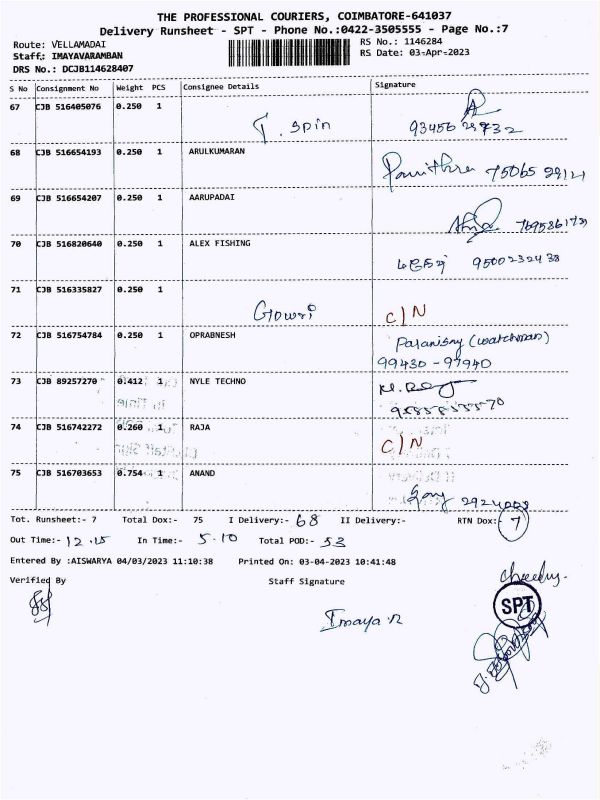 THE PROFESSIONAL COURIERS, COIMBATORE-641037
Delivery Runsheet - SPT - Phone No.:0422-3505555 - Page No.:7
Route: VELLAMADAI
RS No.: 1146284
Staff.: IMAYAVARAMBAN
RS Date: 03-Apr-2023
DRS No.: DCJB114628407
S No Consignment No Weight PCS Consignee Details Signature
67 CJB 516405076 0.250 1 T. spin
68 CJB 516654193 0.250 1 ARULKUMARAN Pavithra
69 CJB 516654207 0.250 1 AARUPADAI
70 CJB 516820640 0.250 1 ALEX FISHING 9500232438
71 CJB 516335827 0.250 1 Gowri C/N
72 CJB 516754784 0.250 1 OPRABNESH Palanisay (watchman)
99430-97940
73 CJB 89257270 0.412 1 NYLE TECHNO
74 CJB 516742272 0.260 1 RAJA C/N
75 CJB 516703653 0.754 1 ANAND
Tot. Runsheet:- 7 Total Dox:- 75 I Delivery:- 68 II Delivery:- RTN Dox:- 7
Out Time:- 12.15 In Time:- 5.10 Total POD:- 53
Entered By :AISWARYA 04/03/2023 11:10:38 Printed On: 03-04-2023 10:41:48
Verified By Staff Signature
SPT
Imaya.R